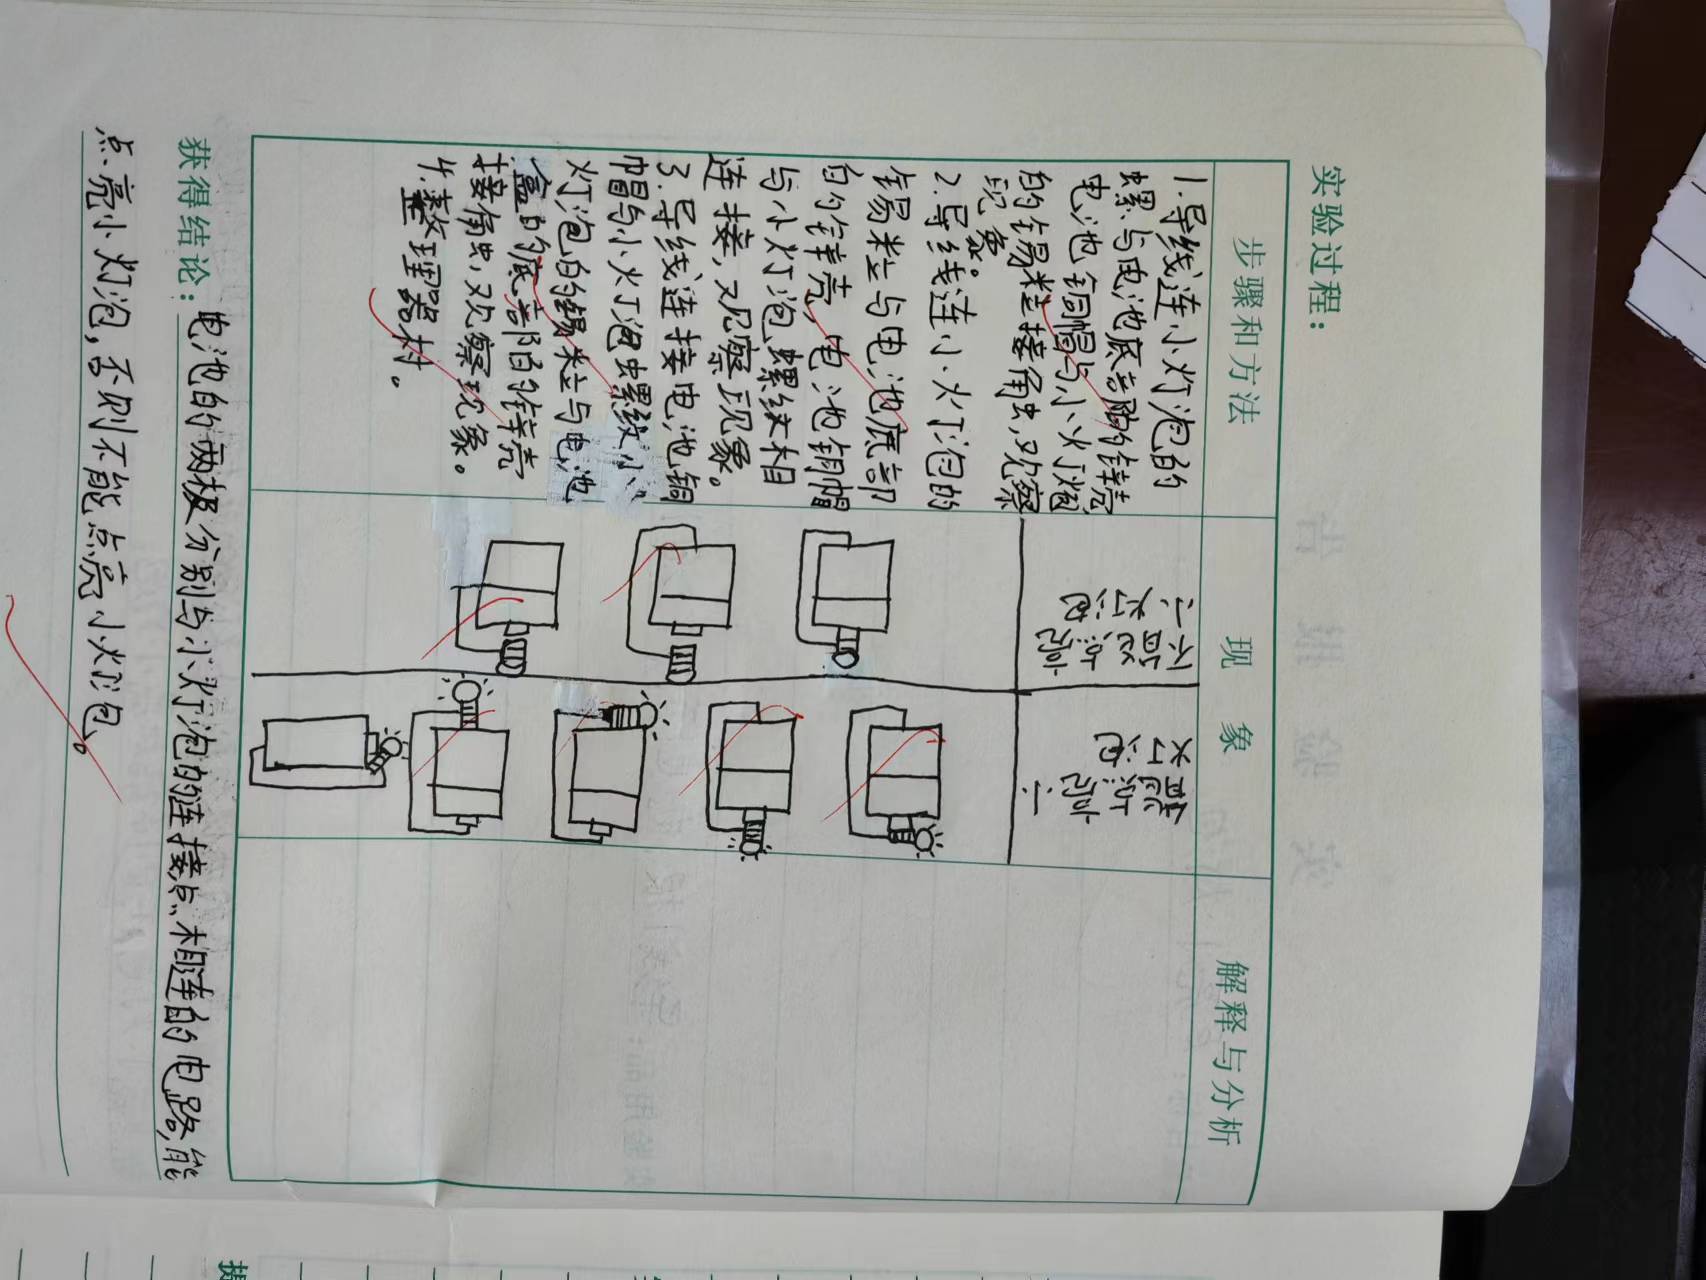 实验过程：
步骤和方法
现象
解释与分析
1.导线连小灯泡的
螺与电池底部的锌壳
电池铜帽与小灯泡
的锡粒接触,观察
现象。
2.导线连小灯泡的
锡粒与电池底部
的锌壳,电池铜帽
与小灯泡螺纹相
连接,观察现象。
3.导线连接电池铜
帽与小灯泡螺纹小
灯泡的锡粒与电池
盒的底部的锌壳
接触,观察现象。
4.整理器材。
灯泡
灯泡
获得结论：电池的两极分别与小灯泡的连接点相连的电路,能
点亮小灯泡,否则不能点亮小灯泡。